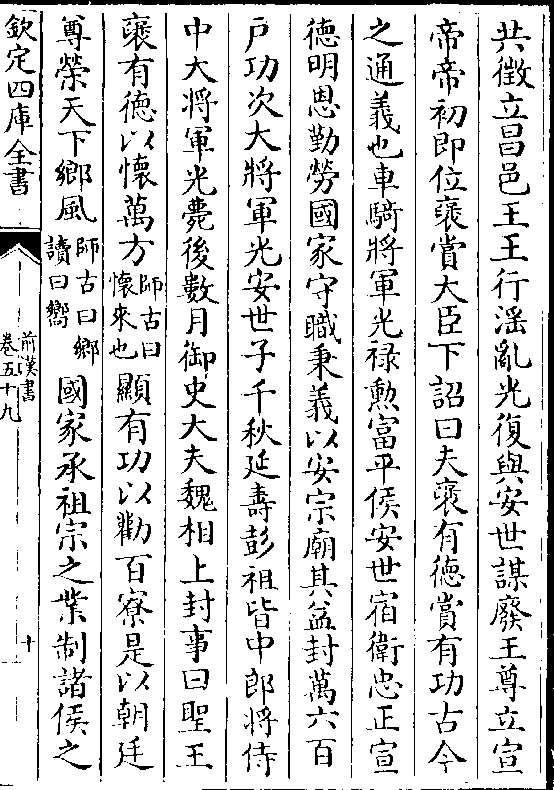 共徵立昌邑王王行滛亂光復與安世謀廢王尊立宣
帝帝初即位襃賞大臣下詔曰夫襃有徳賞有功古今
之通義也車騎將軍光禄勲富平侯安世宿衛忠正宣
徳明恩勤勞國家守職秉義以安宗廟其益封萬六百
户功次大將軍光安世子千秋延壽彭祖皆中郎將侍
中大將軍光薨後數月御史大夫魏相上封事曰聖王
襃有徳以懷萬方師古曰懷來也顯有功以勸百寮是以朝廷
尊榮天下鄉風師古曰鄉讀曰嚮國家承祖宗之業制諸侯之
欽定四庫全書
前漢書
卷五十九
十